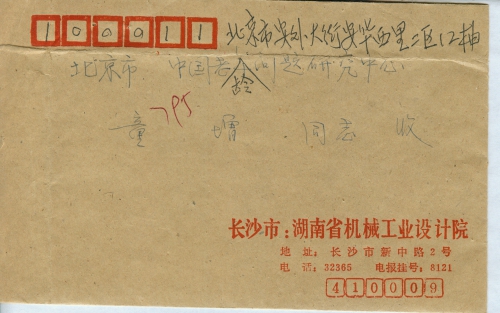 100011 北京市 外大街 华西里二区12楼
北京市 中国老 问题研究中心
龄
795
童 增 同志 收
长沙市：湖南省机械工业设计院
地 址：长沙市新中路2号
电 话：32365 电报挂号：8121
410009